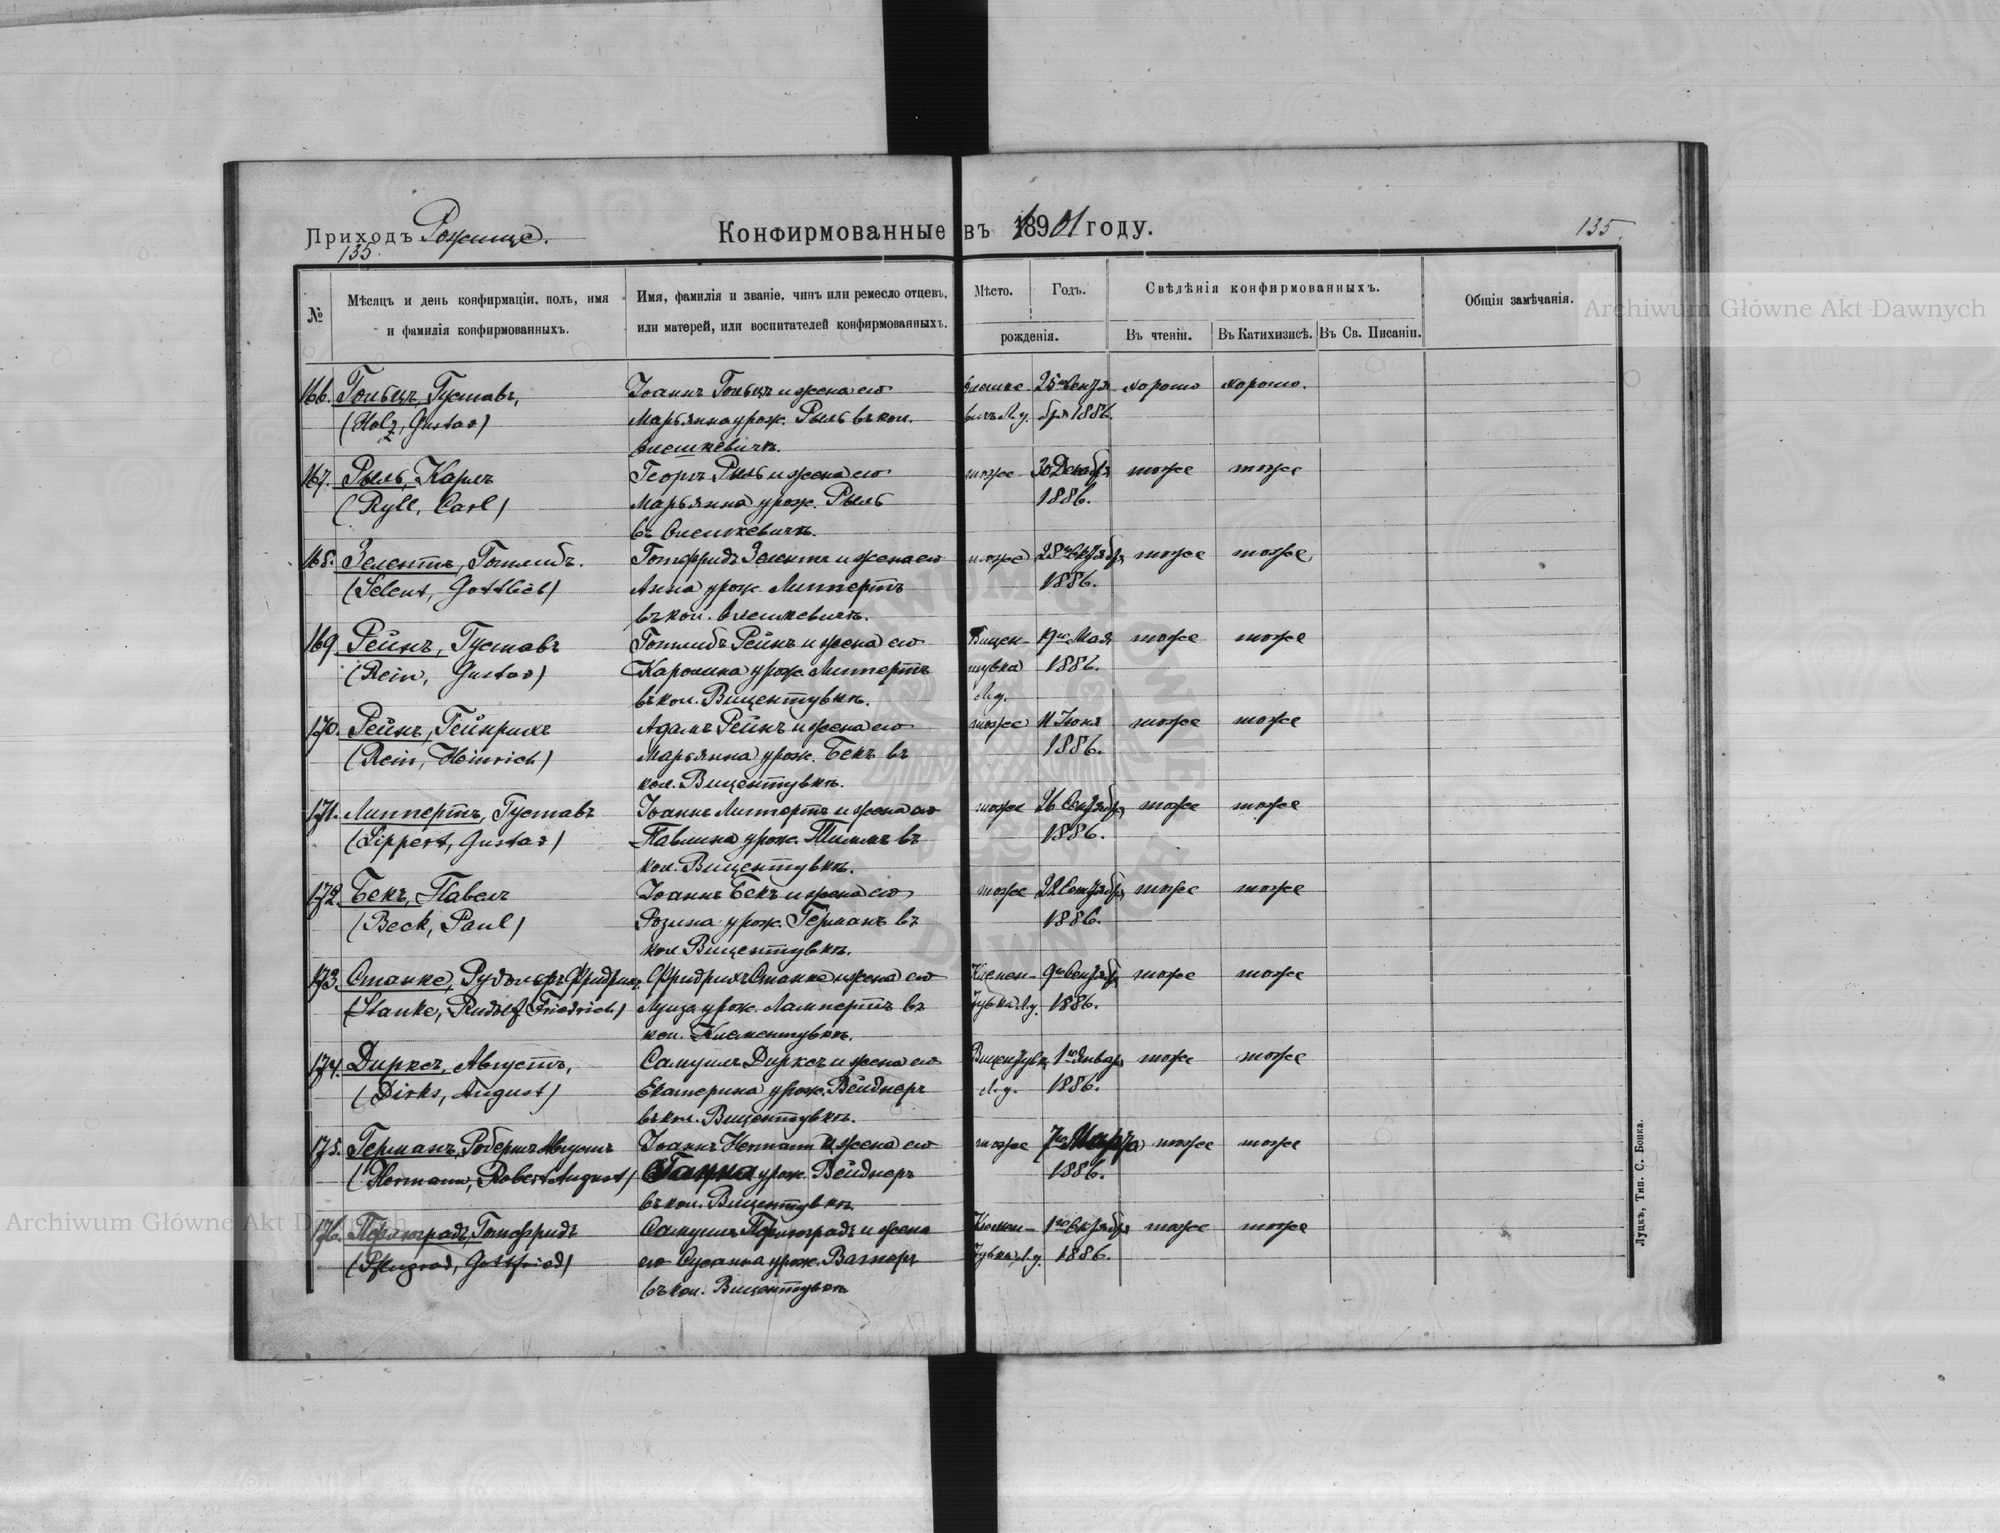 Приходъ Рожище.
135.
Конфирмованные въ 1901 году.
135.
№
Мѣсяцъ и день конфирмаціи, полъ, имя
и фамилія конфирмованныхъ.
Имя, фамилія и званіе, чинъ или ремесло отцевъ,
или матерей, или воспитателей конфирмованныхъ.
Мѣсто.
Годъ.
рожденія.
Свѣдѣнія конфирмованныхъ.
Въ чтеніи.
Въ Катихизисѣ.
Въ Св. Писаніи.
Общія замѣчанія.
166. Гольцъ, Густавъ, Іоаннъ Гольцъ и жена его 25 хорошо хорошо.
(Holz, Gustav) Марьянна урож. Рыль въ кол. 1886.
Олешкевичъ.
167. Рыль, Карлъ Георгъ Рыль и жена его тоже 30 Декабр тоже тоже
(Ryll, Carl) Марьянна урож. Рыль 1886.
въ Олешкевичъ.
168. Зелентъ, Готлибъ. Готфридъ Зелентъ и жена его тоже 28 тоже тоже,
(Selent, Gottlieb) Анна урож. Липертъ 1886.
въ кол. Олешкевичъ.
169. Рейнъ, Густавъ Готлибъ Рейнъ и жена его Вицен- 19го Мая тоже тоже
(Rein, Gustav) Каролина урож. Липертъ тувка 1886.
въ кол. Вицентувкѣ. Л.у.
170. Рейнъ, Гейнрихъ Адамъ Рейнъ и жена его тоже 11 Іюня тоже тоже
(Rein, Heinrich) Марьянна урож. Бекъ въ 1886.
кол. Вицентувкѣ.
171. Липпертъ, Густавъ Іоаннъ Липпертъ и жена его тоже 26 Сентябр тоже тоже
(Lippert, Gustav) Павлина урож. Тиммъ въ 1886.
кол. Вицентувкѣ.
172. Бекъ, Павелъ Іоаннъ Бекъ и жена его тоже 22 тоже тоже
(Beck, Paul) Розина урож. Германъ въ 1886.
кол. Вицентувкѣ.
173. Станке, Рудольфъ Фридрихъ Фридрихъ Станке и жена его Клемен- 9го Сентябр тоже тоже
(Stanke, Rudolf Friedrich) Луиза урож. Лампертъ въ тувка Л.у. 1886.
кол. Клементувкѣ.
174. Дирксъ, Августъ, Самуилъ Дирксъ и жена его Вицентувк 1го Январ тоже тоже
(Dirks, August) Екатерина урож. Вейднеръ Л.у. 1886.
въ кол. Вицентувкѣ.
175. Германъ, Робертъ Августъ Іоаннъ Hermann и жена его тоже 7го Марта тоже тоже
(Hermann, Robert August) урож. Вейднеръ 1886.
въ кол. Вицентувкѣ.
176. Готфридъ Самуилъ и жена Клемен- 1го тоже тоже
Gottfried) его Сусанна урож. Вагнеръ тувка Л.у. 1886.
въ кол. Вицентувкѣ
Луцкъ, Тип. С. Бонка.
Archiwum Główne Akt Dawnych
Archiwum Główne Akt Dawnych